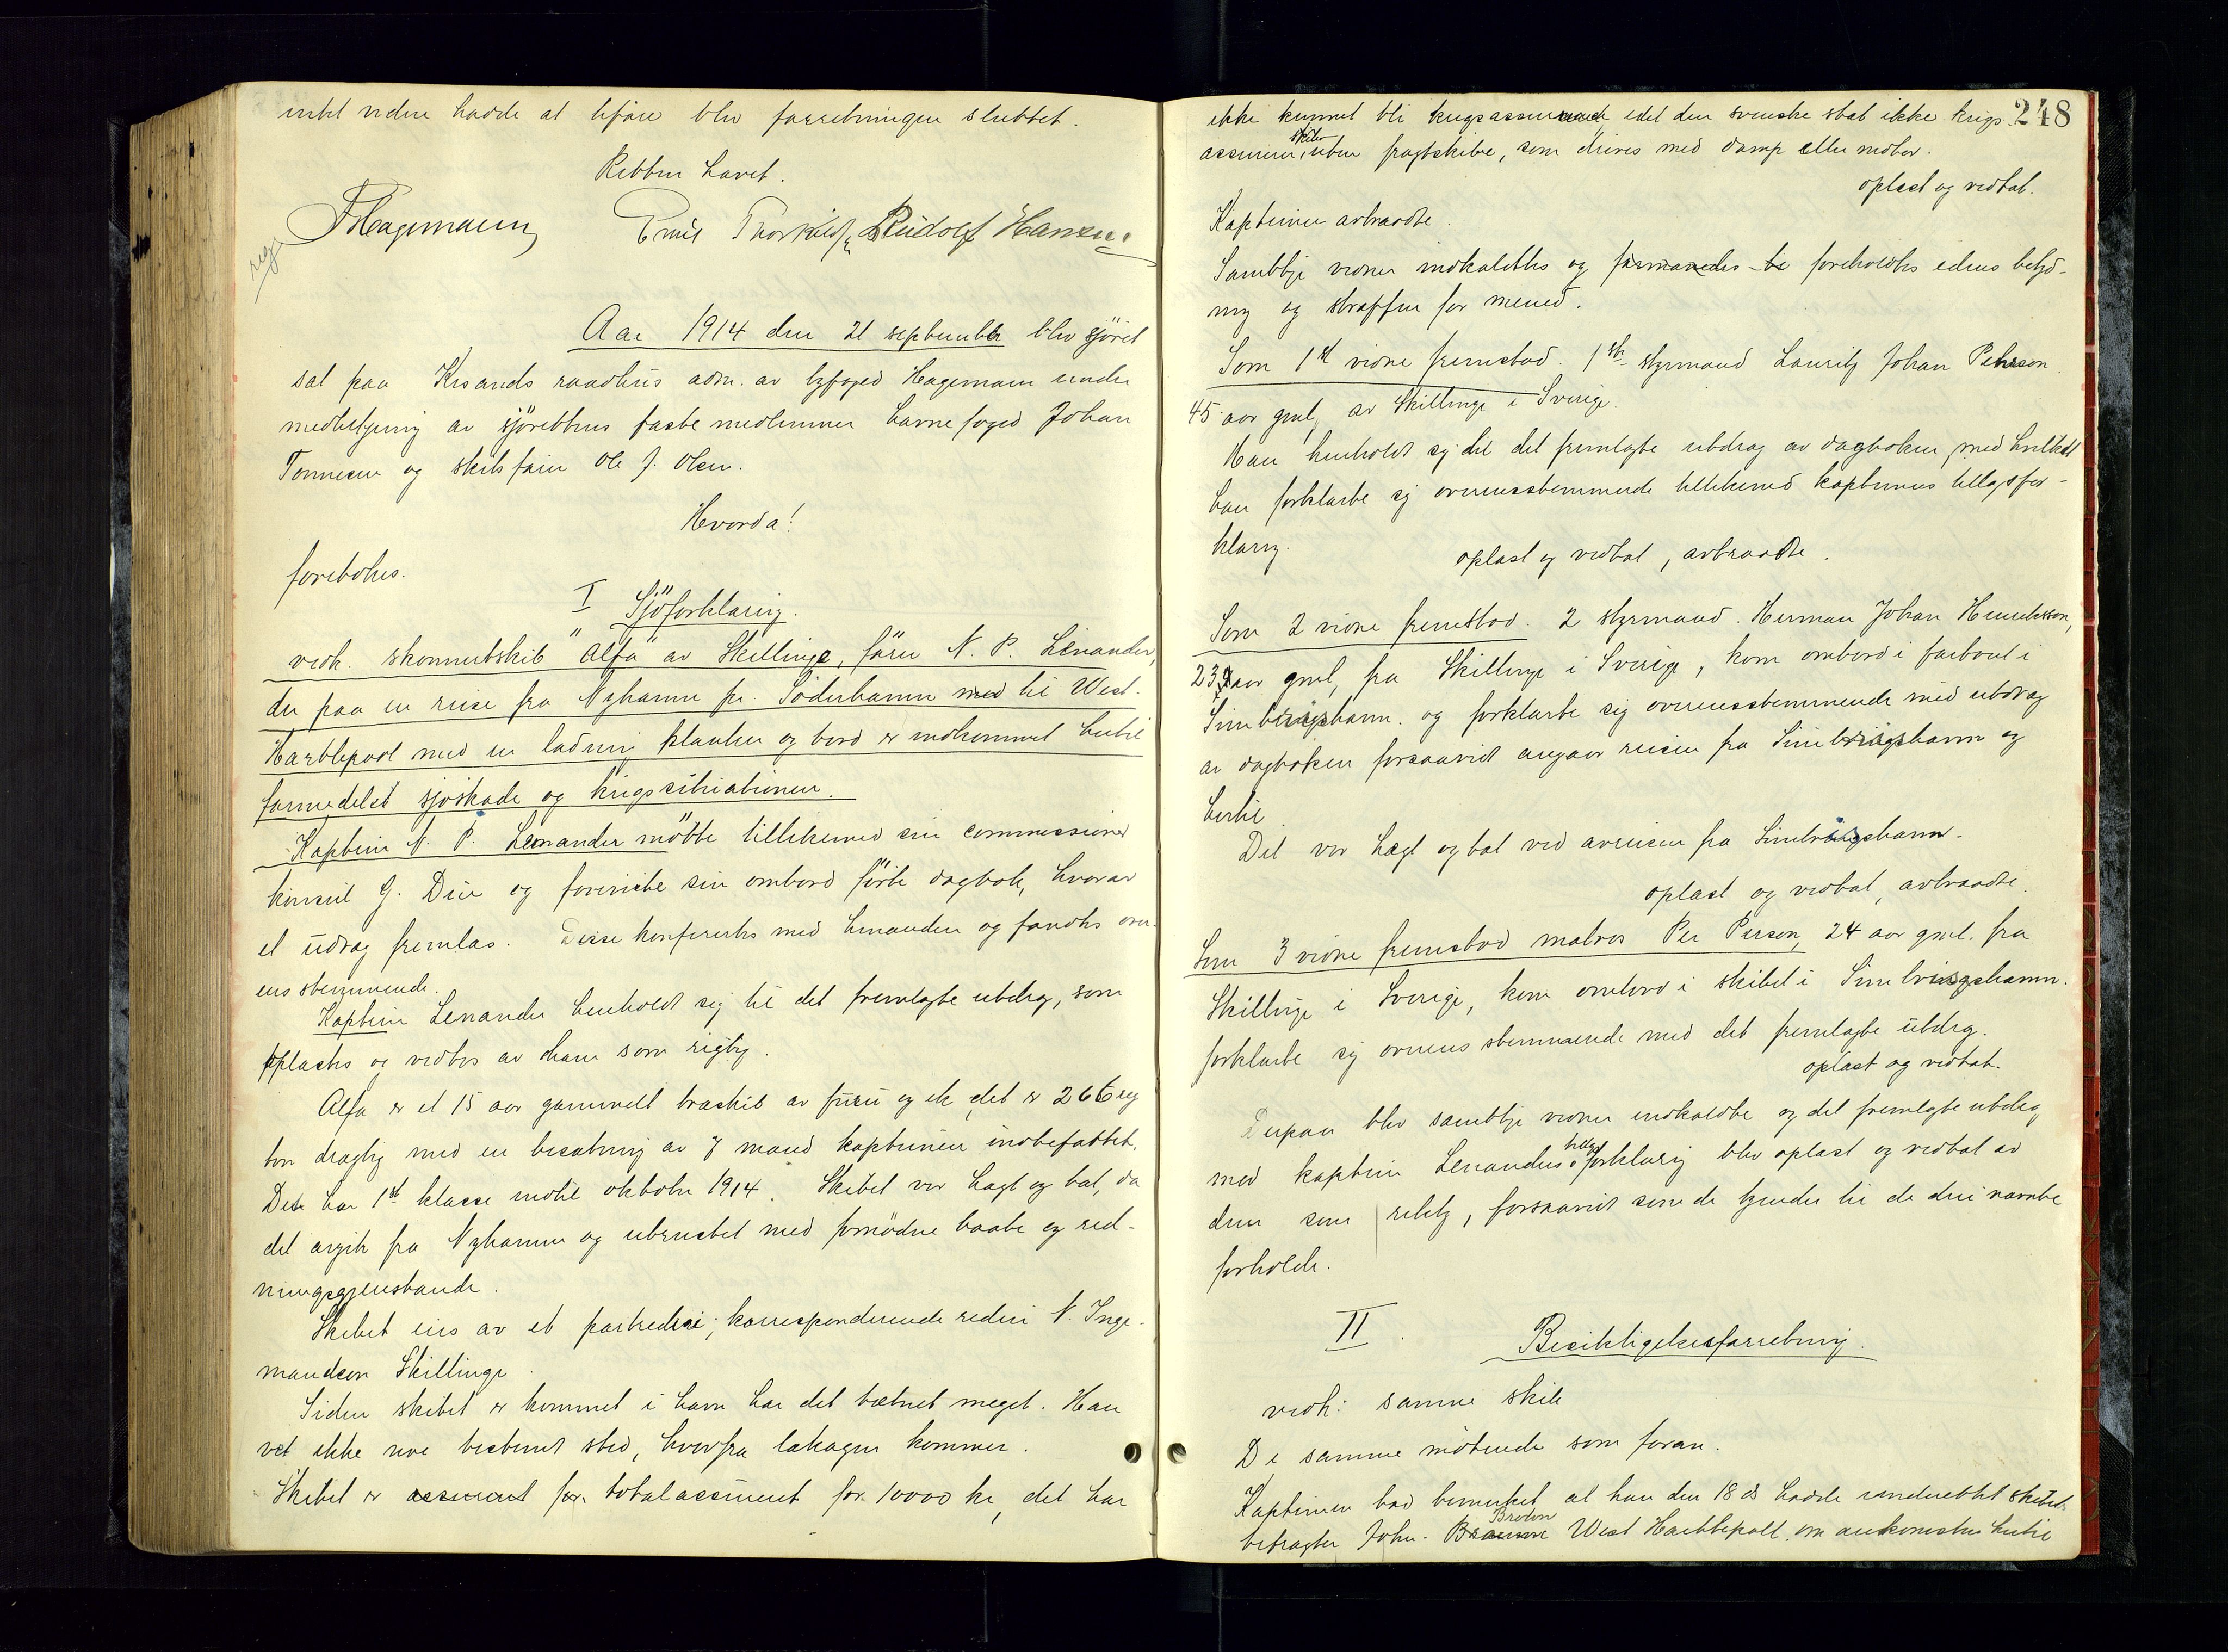 intet videre hadde at tiføie blev forretningen sluttet.
Retten hævet.
FHagemann
Emil Thorkildsen Rudolf Hansen
reg
Aar 1914 den 21 september blev sjöret
sat paa Krsands raadhus adm. av byfoged Hagemann under
medbetjening av sjörettens faste medlemmer havnefoged Johan
Tönnesen og skibsförer Ole J. Olsen.
Hvorda!
foretokes.
I Sjöforklaring.
vedk. skonnertskib "Alfa" av Skillinge, förer N. P. Lenander,
der paa en reise fra Nyhamn pr. Söderhamn med til West-
Hartlepool med en ladning planker og bord er indkommet hertil
formedelst sjöskade og krigssituationen.
Kaptein N. P. Lenander mötte tillikemed sin commissionær
konsul G. Due og foreviste sin ombord förte dagbok, hvorav
et utdrag fremlas. Disse konferertes med hinanden og fandtes over-
ensstemmende.
Kaptein Lenander henholdt sig til det fremlagte utdrag, som
oplæstes og vedtos av ham som rigtig.
Alfa er et 15 aar gammelt træskib av furu og ek, det er 266 reg
ton drægtig med en besætning av 7 mand kapteinen indbefattet.
Det har 1st klasse indtil oktober 1914. Skibet var tægt og tæt, da
det avgik fra Nyhamn og utrustet med fornödne baate og red-
ningsgjenstande.
Skibet eies av et partrederi; korresponderende rederi N. Inge-
mandson Skillinge.
Siden skibet er kommet i havn har det tætnet meget. Han
vet ikke noe bestemt sted, hvorfra lækagen kommer.
Skibet er assurert for totalassurert for 10000 kr, det har
248
ikke kunnet bli krigsassurerende, idet den svenske stat ikke krigs-
assurerer skibe, uten fragtskibe, som drives med damp eller motor.
oplæst og vedtat.
Kapteinen avtraadte.
Samtlige vidner indkaldtes og formanedes te foreholdtes edens betyd-
ning og straffen for mened.
Som 1st vidne fremstod. 1ste styrmand Lauritz Johan Pehrson
45 aar gml, av Skillinge i Sverige.
Han henholdt sig til det fremlagte utdrag av dagboken, med hvilket
han forklarte sig overensstemmende tillikemed kapteinens tillægsfor-
klaring.
oplæst og vedtat, avtraadte.
Som 2 vidne fremstod. 2 styrmand. Herman Johan Henriksson,
23 aar gml, fra Skillinge i Sverige, kom ombord i fartöiet i
Simbrisgshamn. og forklarte sig overensstemmende med utdrag
av dagboken forsaavidt angaar reisen fra Simbrisgshamn og
hertil.
Det var tægt og tæt ved avreisen fra Simbrisgshamn.
oplæst og vedtat, avtraadte.
Som 3 vidne fremstod matros Per Person, 24 aar gml. fra
Skillinge i Sverige, kom ombord i skibet i Simbrisgshamn.
forklarte sig overensstemmende med det fremlagte utdrag.
oplæst og vedtat.
Derpaa blev samtlige vidner indkaldte og det fremlagte utdrag
med kaptein Lenanders tillægsforklaring blev oplæst og vedtat av
dem som rigtig, forsaavidt som de kjender til de deri nævnte
forholde.
II. Besiktigelsesforretning.
vedk: samme skib
De samme mötende som foran.
Kapteinen bad bemerket, at han den 18 ds hadde underrettet skibets
befragter John. Braunn Brown West Hartlepool. om ankomsten hertil